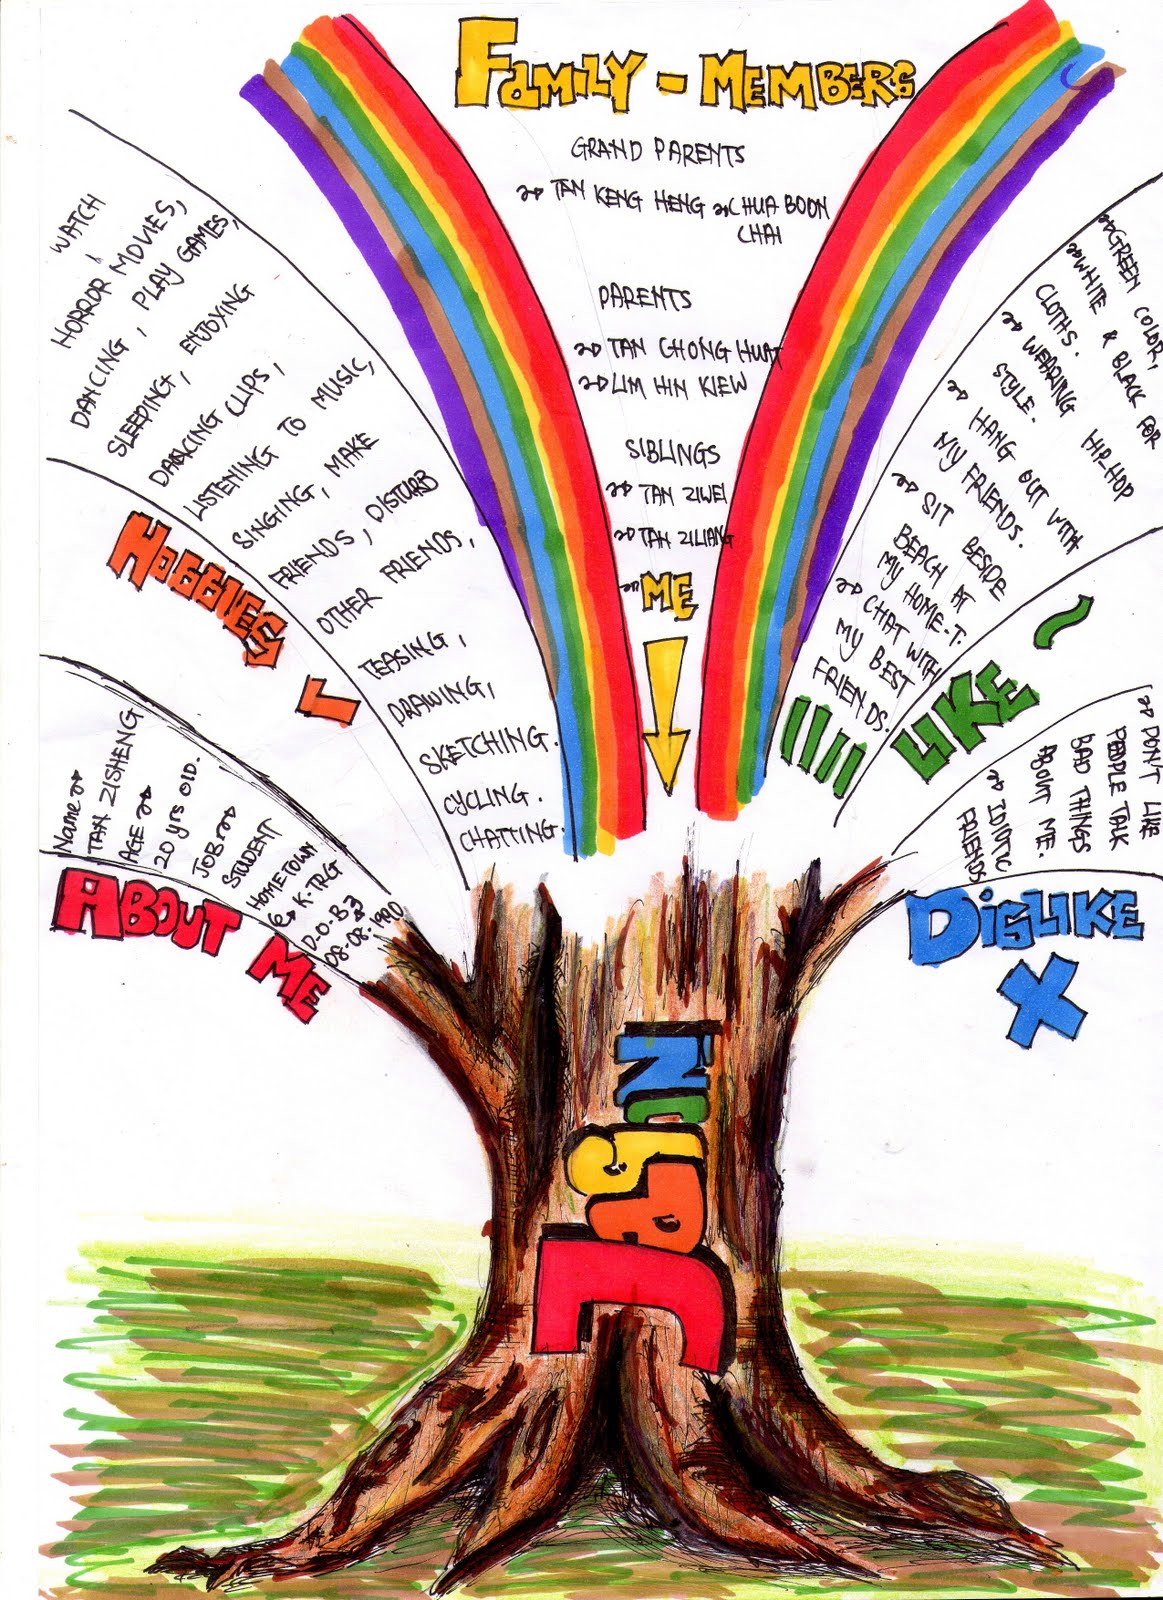 FAMILY - MEMBERS
GRAND PARENTS
TAN KENG HENG CHUA BOON
CHAI
PARENTS
TAN CHONG HUAT
LIM HIN KIEW
SIBLINGS
TAN ZIWEI
TAN ZILIANG
ME
HOBBIES
WATCH
HORROR MOVIES,
DANCING, PLAY GAMES,
SLEEPING, ENJOYING
DANCING CLIPS,
LISTENING TO MUSIC,
SINGING, MAKE
FRIENDS, DISTURB
OTHER FRIENDS,
TEASING,
DRAWING,
SKETCHING.
CYCLING.
CHATTING.
ABOUT ME
Name
TAN ZISHENG
AGE
20 yrs OLD.
JOB
STUDENT
HOMETOWN
K-TRG
D-O-B
08-08-1990
LIKE ~
GREEN COLOR,
WHITE & BLACK FOR
CLOTHS.
WEARING HIP-HOP
STYLE.
HANG OUT WITH
MY FRIENDS.
SIT BESIDE
BEACH AT
MY HOME-T.
CHAT WITH
MY BEST
FRIENDS.
DISLIKE
DON'T LIKE
PEOPLE TALK
BAD THINGS
ABOUT ME.
IDIOTIC
FRIENDS